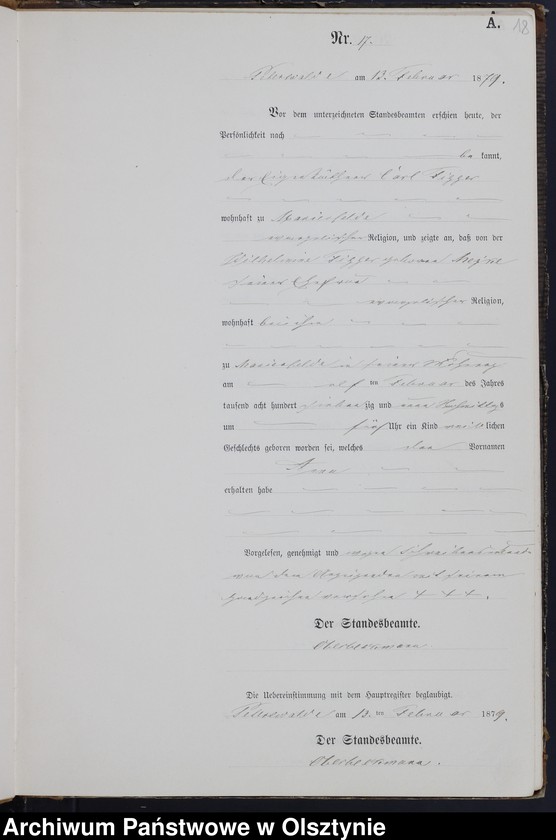 A. 18
Nr. 17.
am 13. Februar 1879.
Vor dem unterzeichneten Standesbeamten erschien heute, der
Persönlichkeit nach
be kannt,
der Eigenkäthner Carl
wohnhaft zu Marienfelde
evangelischer Religion, und zeigte an, daß von der
Wilhelmine geborene
seiner Ehefrau
evangelischer Religion,
wohnhaft bei ihm
zu Marienfelde in seiner Wohnung
am elf ten Februar des Jahres
tausend acht hundert siebenzig und neun Nachmittags
um fünf Uhr ein Kind weiblichen
Geschlechts geboren worden sei, welches den Vornamen
Anna
erhalten habe
Vorgelesen, genehmigt und wegen
von dem Anzeigenden mit seinem
Handzeichen versehen + + +.
Der Standesbeamte.
Die Uebereinstimmung mit dem Hauptregister beglaubigt.
am 13. ten Februar 1879.
Der Standesbeamte.
Archiwum Państwowe w Olsztynie